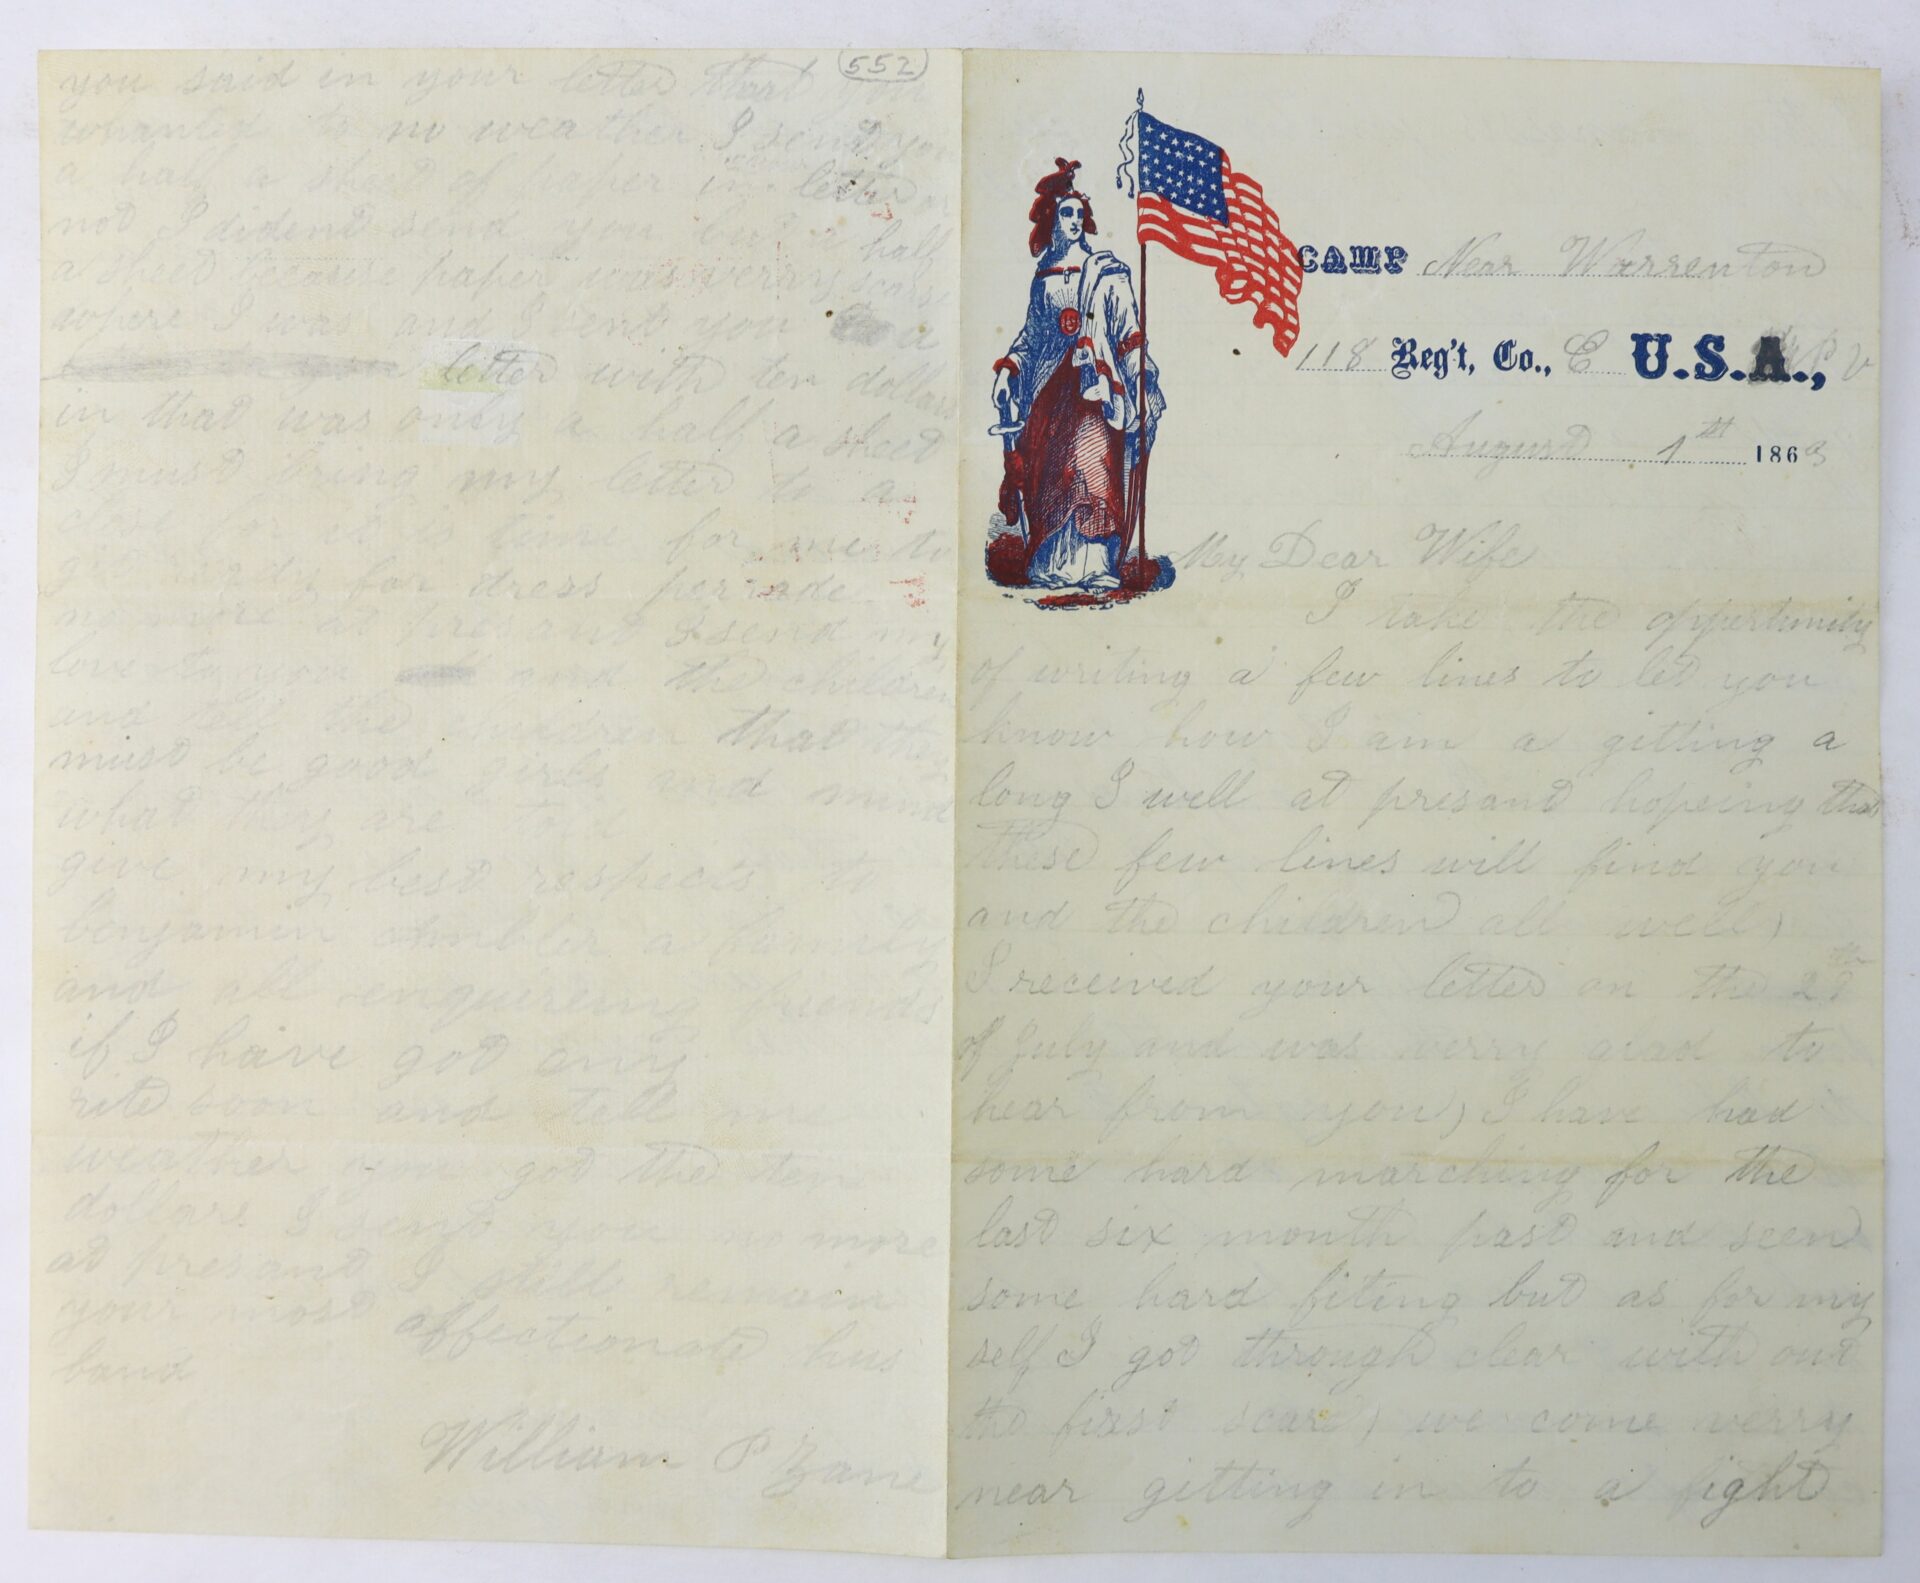 552
you said in your letter that you
whanted to no weather I send you
a half a sheet of paper in letter or
not I dident send you but a half
a sheet because paper was verry scarse
where I was and I sent you a
letter with ten dollars
in that was only a half a sheet
I must bring my letter to a
close for it is time for me to
git ready for dress perrade
no more at presant I send my
love to you and the children
and tell the children that they
must be good girls and mind
what they are told
give my best respects to
benjamin a family
and all enquireing friends
if I have got any
rite soon and tell me
weather you got the ten
dollars I sent you no more
at presant I still remain
your most affectionate hus
band
William P Zane
CAMP Near Warrenton
118 Reg't, Co., E U.S.A., P V
August 1st 1863
My Dear Wife
I take the oppertunity
of writing a few lines to let you
know how I am a gitting a
long I well at presant hopeing that
these few lines will find you
and the children all well)
I received your letter on the
of July and was verry glad to
hear from you) I have had
some hard marching for the
last six month past and seen
some hard fiting but as for my
self I got through clear with out
the first scare) we come verry
near gitting in to a fight